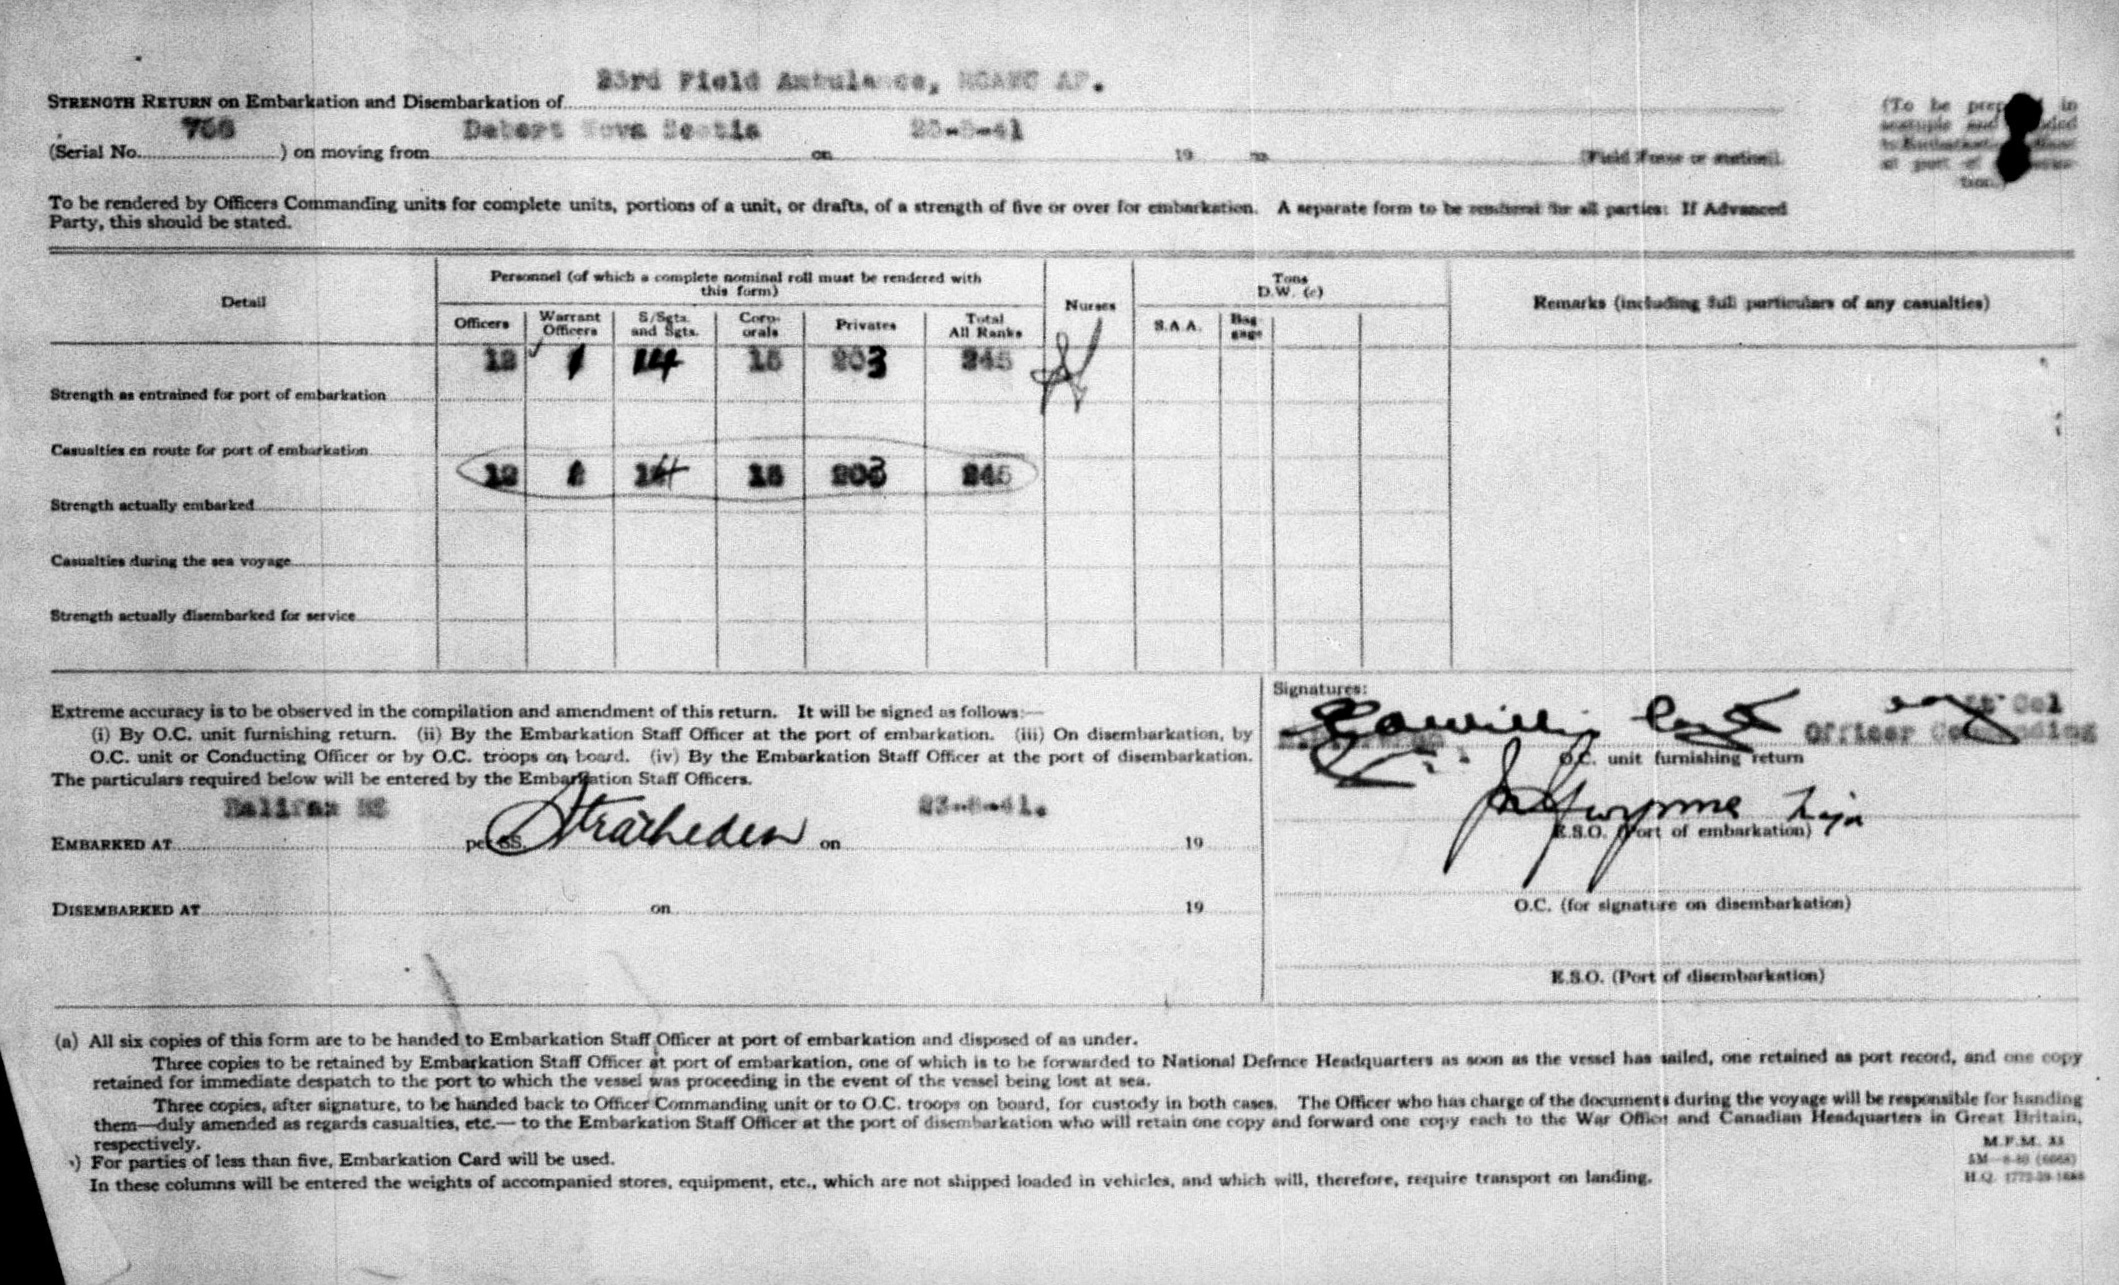 23rd Field Ambulance, RCAMC AF.
STRENGTH RETURN on Embarkation and Disembarkation of
768 Debert Nova Scotia
(Serial No. ) on moving from on 19 to (Field Force or station).
(To be in
and
at port of
tion.)
To be rendered by Officers Commanding units for complete units, portions of a unit, or drafts, of a strength of five or over for embarkation. A separate form to be rendered for all parties: If Advanced
Party, this should be stated.
Detail
Personnel (of which a complete nominal roll must be rendered with
this form)
Officers
Warrant
Officers
S/Sgts.
and Sgts.
Corp-
orals
Privates
Total
All Ranks
Nurses
Tons
D.W. (c)
S.A.A.
Bag-
gage
Remarks (including full particulars of any casualties)
12 1 14 15 203 245
Strength as entrained for port of embarkation
Casualties en route for port of embarkation
12 1 14 15 203 245
Strength actually embarked
Casualties during the sea voyage
Strength actually disembarked for service
Extreme accuracy is to be observed in the compilation and amendment of this return. It will be signed as follows:—
(i) By O.C. unit furnishing return. (ii) By the Embarkation Staff Officer at the port of embarkation. (iii) On disembarkation, by
O.C. unit or Conducting Officer or by O.C. troops on board. (iv) By the Embarkation Staff Officer at the port of disembarkation.
The particulars required below will be entered by the Embarkation Staff Officers.
Halifax NS
EMBARKED AT per SS. Stratheden on 19
DISEMBARKED AT on 19
Signatures:
Lt Col
Officer Commanding
O.C. unit furnishing return
Gwynne Major
E.S.O. (Port of embarkation)
O.C. (for signature on disembarkation)
E.S.O. (Port of disembarkation)
(a) All six copies of this form are to be handed to Embarkation Staff Officer at port of embarkation and disposed of as under.
Three copies to be retained by Embarkation Staff Officer at port of embarkation, one of which is to be forwarded to National Defence Headquarters as soon as the vessel has sailed, one retained as port record, and one copy
retained for immediate despatch to the port to which the vessel was proceeding in the event of the vessel being lost at sea.
Three copies, after signature, to be handed back to Officer Commanding unit or to O.C. troops on board, for custody in both cases. The Officer who has charge of the documents during the voyage will be responsible for handing
them—duly amended as regards casualties, etc.— to the Embarkation Staff Officer at the port of disembarkation who will retain one copy and forward one copy each to the War Office and Canadian Headquarters in Great Britain,
respectively.
) For parties of less than five, Embarkation Card will be used.
In these columns will be entered the weights of accompanied stores, equipment, etc., which are not shipped loaded in vehicles, and which will, therefore, require transport on landing.
M.F.M. 33
H.Q.